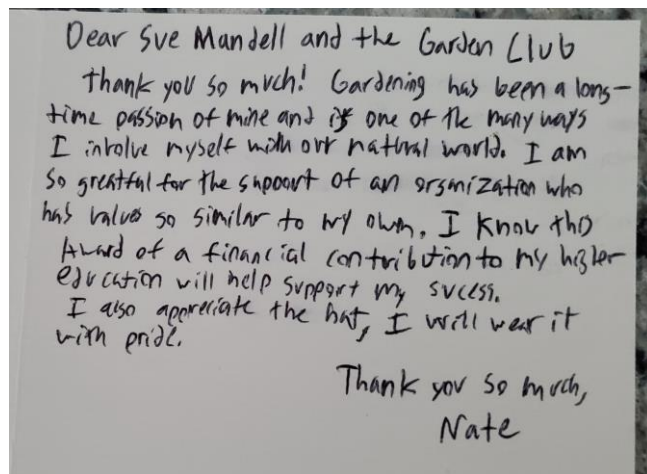 Dear Sue Mandell and the Garden Club
Thank you so much! Gardening has been a long-
time passion of mine and is one of the many ways
I involve myself with our natural world. I am
so greatful for the support of an organization who
has values so similar to my own. I know this
Award of a financial contribution to my higher
education will help support my sucess.
I also appreciate the hat, I will wear it
with pride.
Thank you so much,
Nate